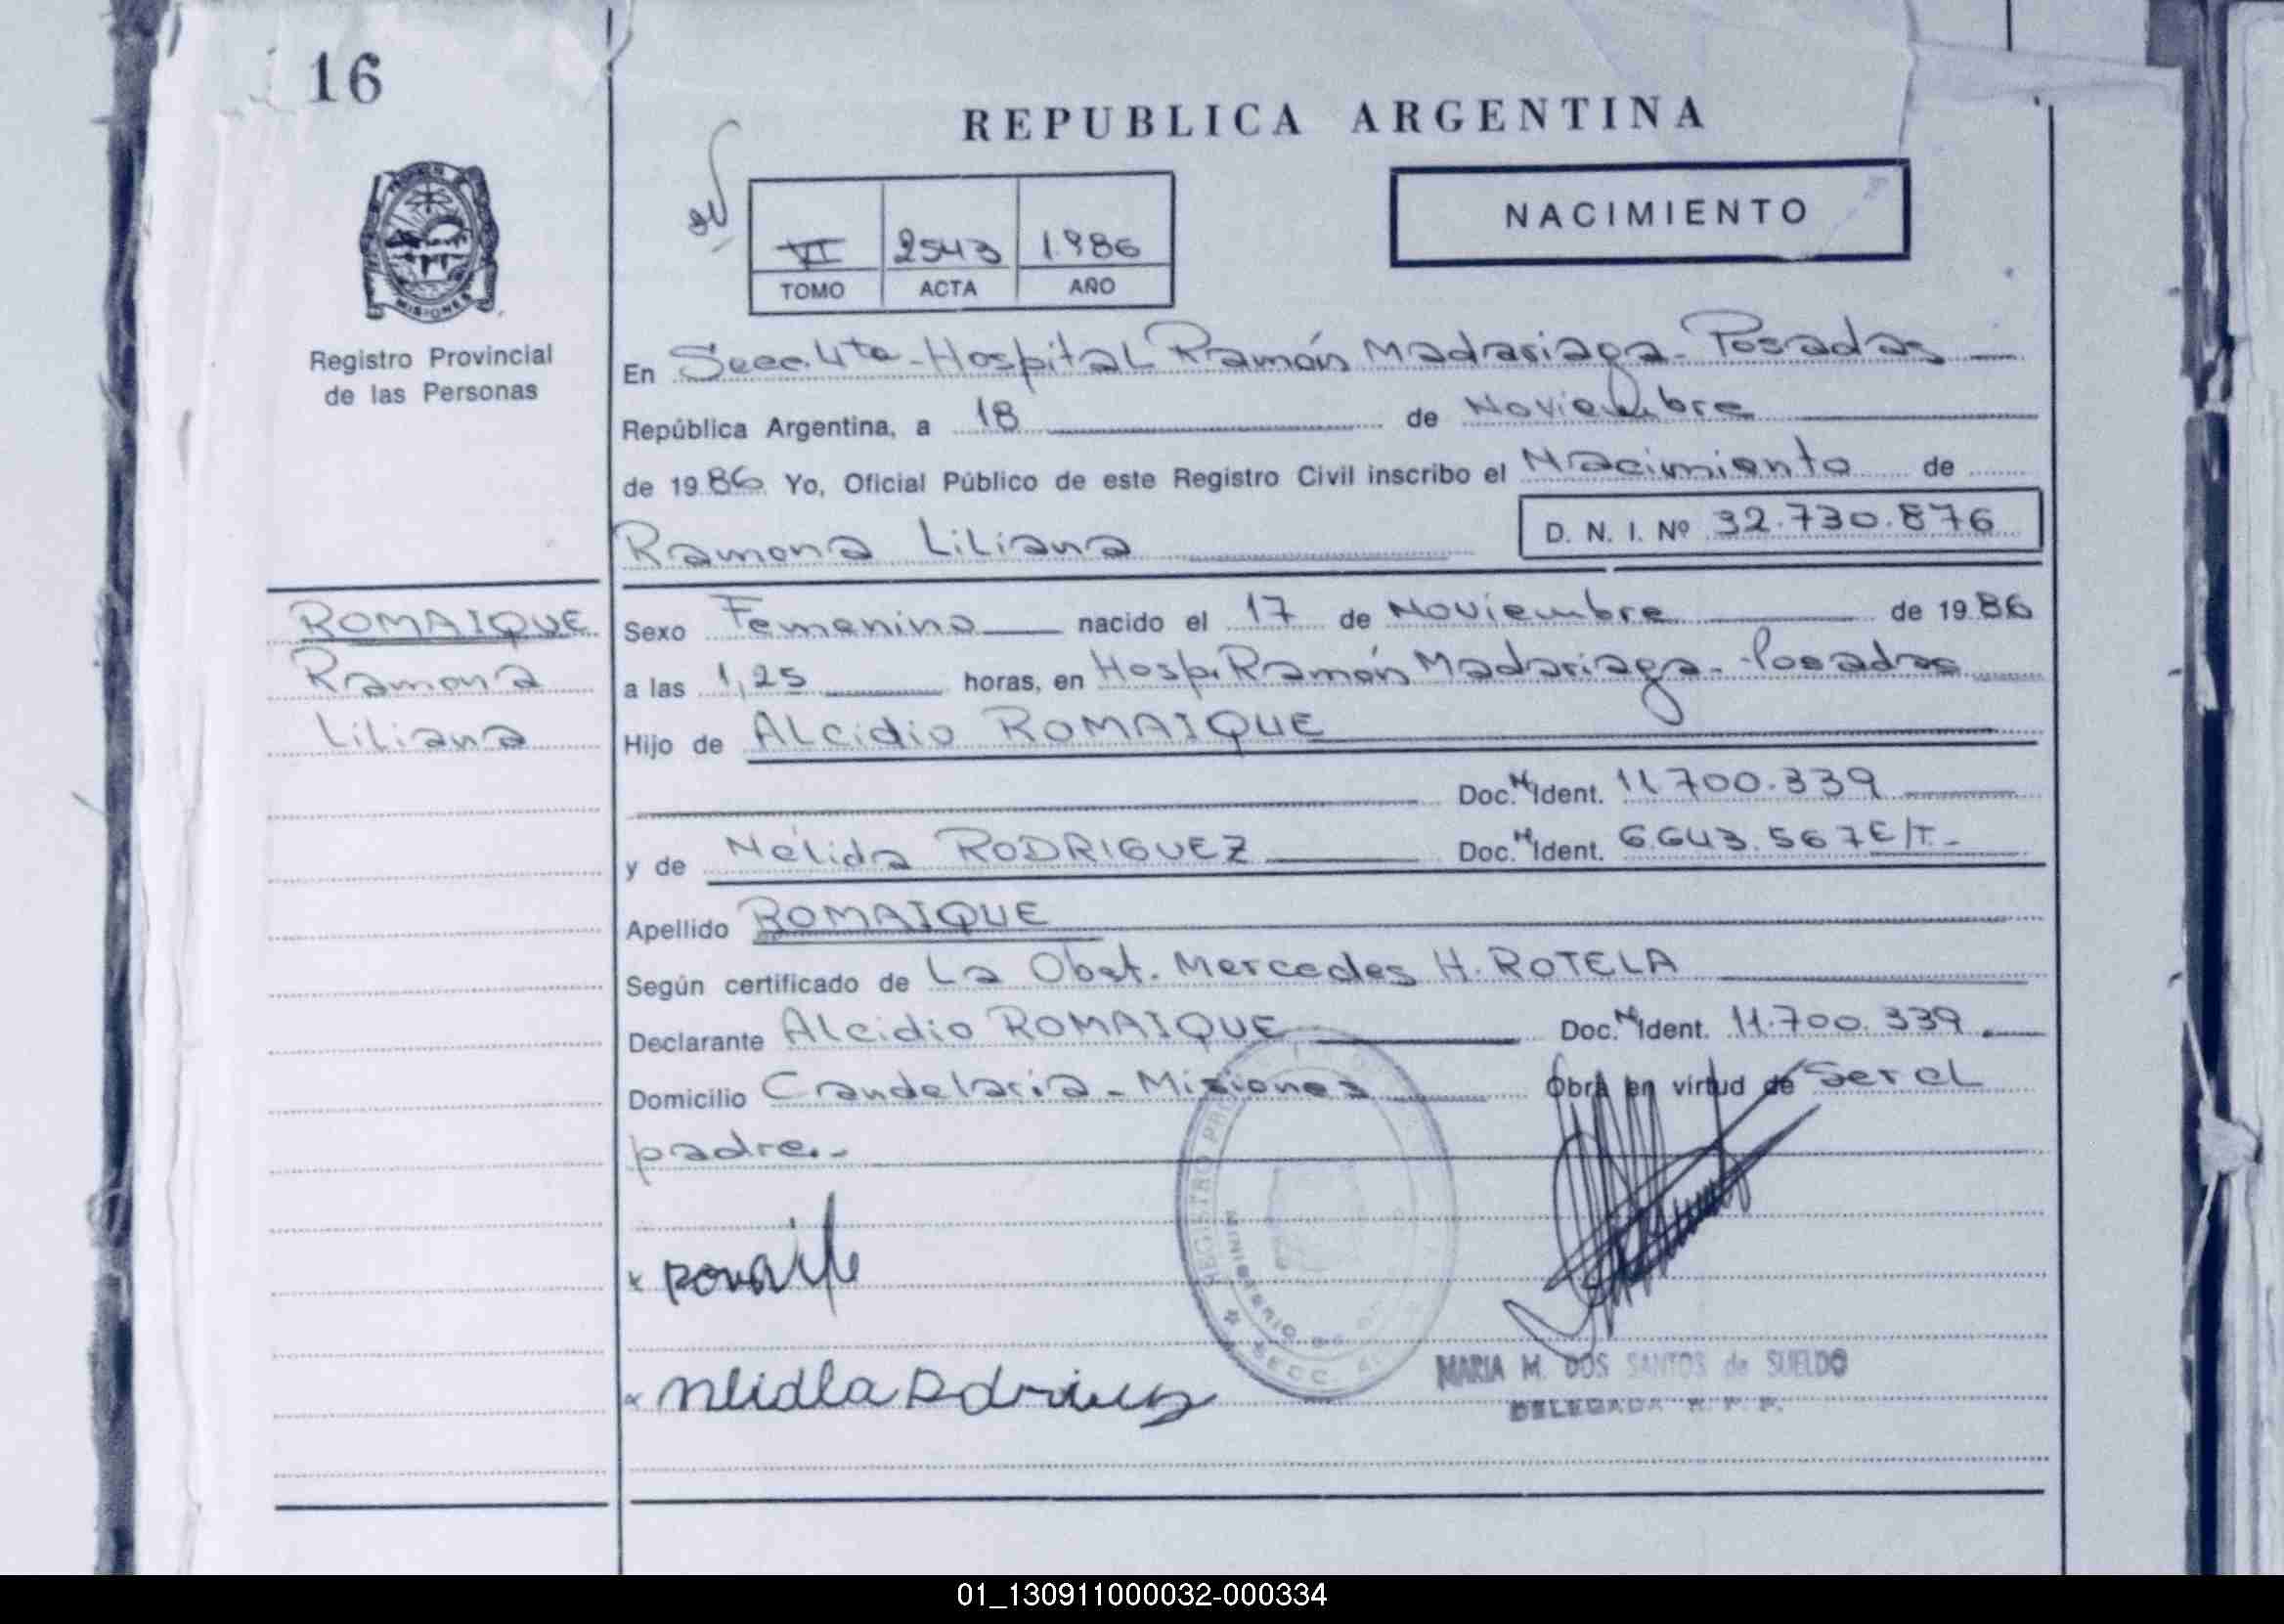 16
REPUBLICA ARGENTINA
NACIMIENTO
VI 2543 1.986
TOMO ACTA AÑO
MISIONES
Registro Provincial
de las Personas
En Secc. 4ta - Hospital Ramón Madariaga - Posadas
República Argentina, a 18 de Noviembre
de 1986 Yo, Oficial Público de este Registro Civil inscribo el Nacimiento de
Ramona Liliana D. N. I. Nº 32.730.876
ROMAIQUE
Ramona
Liliana
Sexo Femenino nacido el 17 de Noviembre de 1986
a las 1,25 horas, en Hosp. Ramón Madariaga - Posadas
Hijo de Alcidio ROMAIQUE
Doc. N Ident. 11.700.339
y de Nélida RODRIGUEZ Doc. N Ident. 6.643.567 E/T.-
Apellido ROMAIQUE
Según certificado de La Obst. Mercedes H. ROTELA
Declarante Alcidio ROMAIQUE Doc. N Ident. 11.700.339.
Domicilio Candelaria - Misiones Obra en virtud de Ser el
padre.-
REGISTRO
MINISTERIO
SECC. 4
MARIA M. DOS SANTOS de SUELDO
DELEGADA R. P. P.
01_130911000032-000334